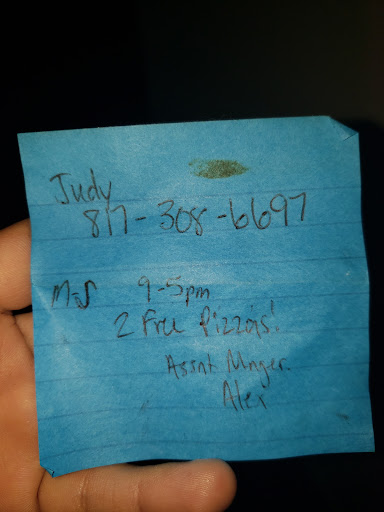 Judy
817-308-6697
9-5pm
2 Free Pizzas!
Assnt Mnger.
Alex